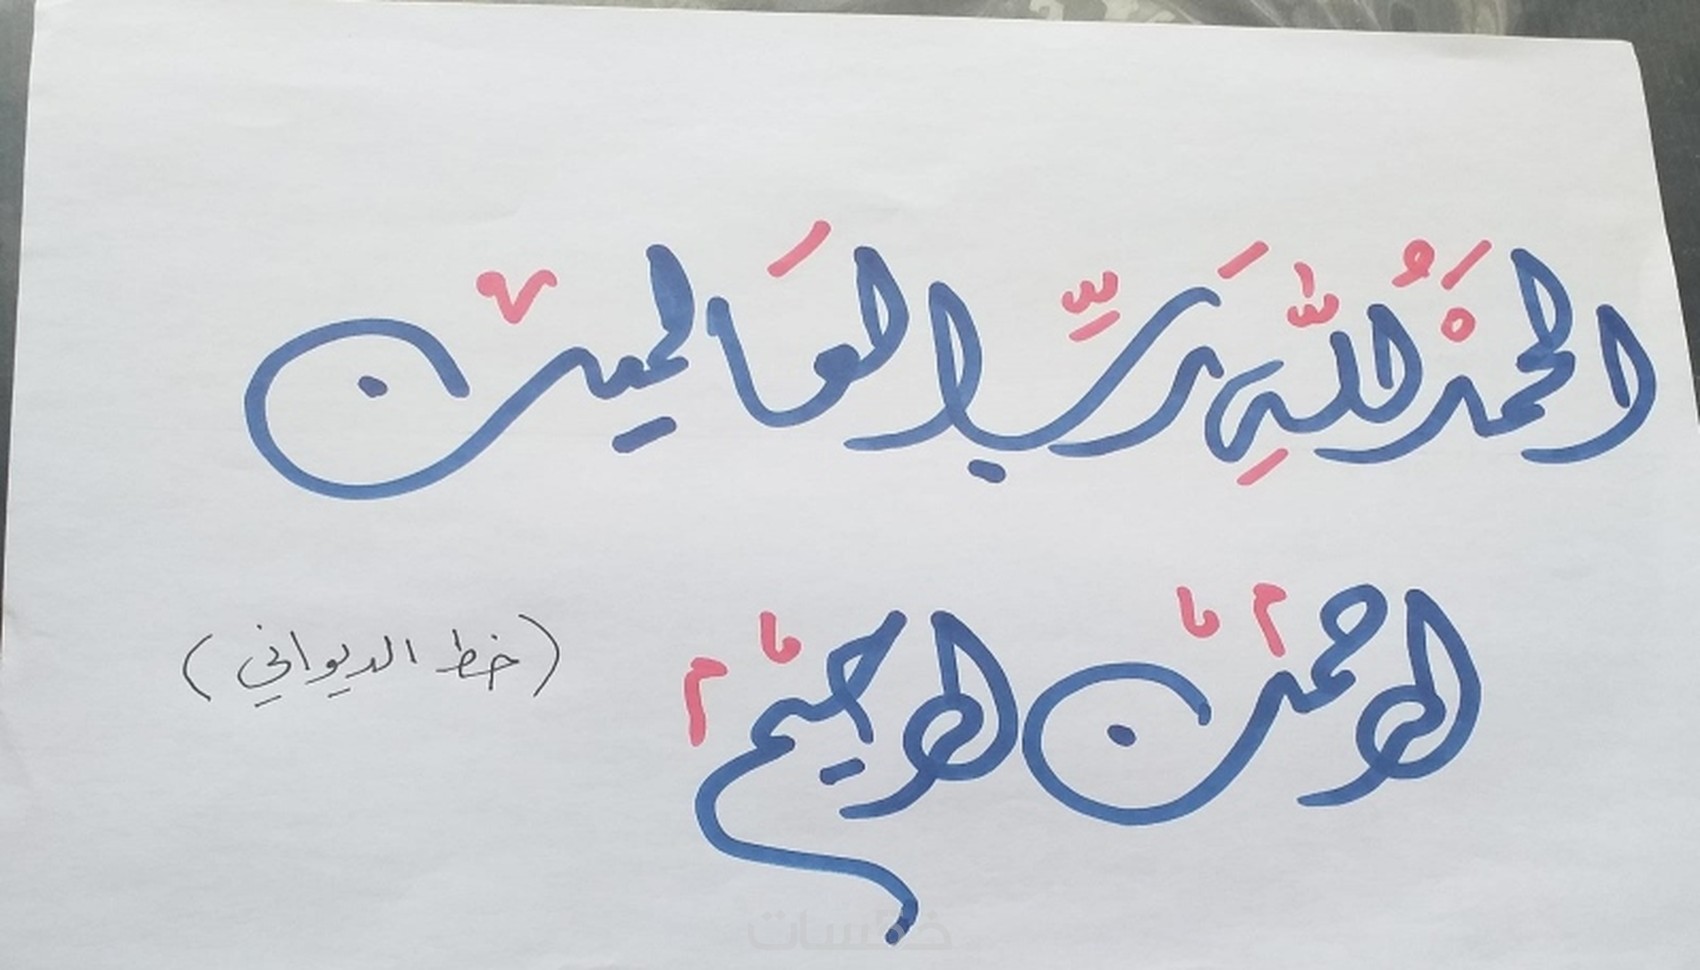 الحَمْدُ للّٰهِ رَبِّ العَالمين
الرحمن الرحيم
(خط الديواني)
خمسات